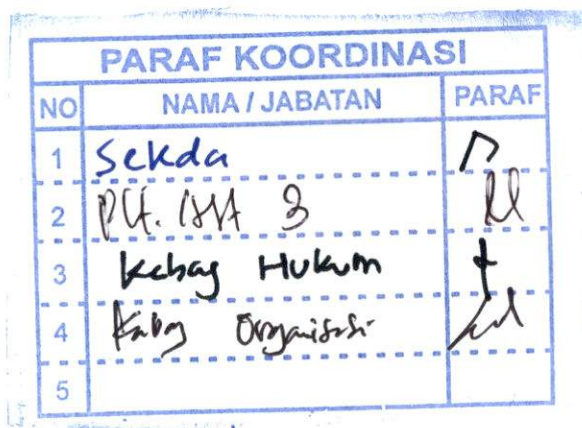 PARAF KOORDINASI
NO NAMA / JABATAN PARAF
1 Sekda
2 Plt. Asst 3
3 Kabag Hukum
4 Kabag Organisasi
5